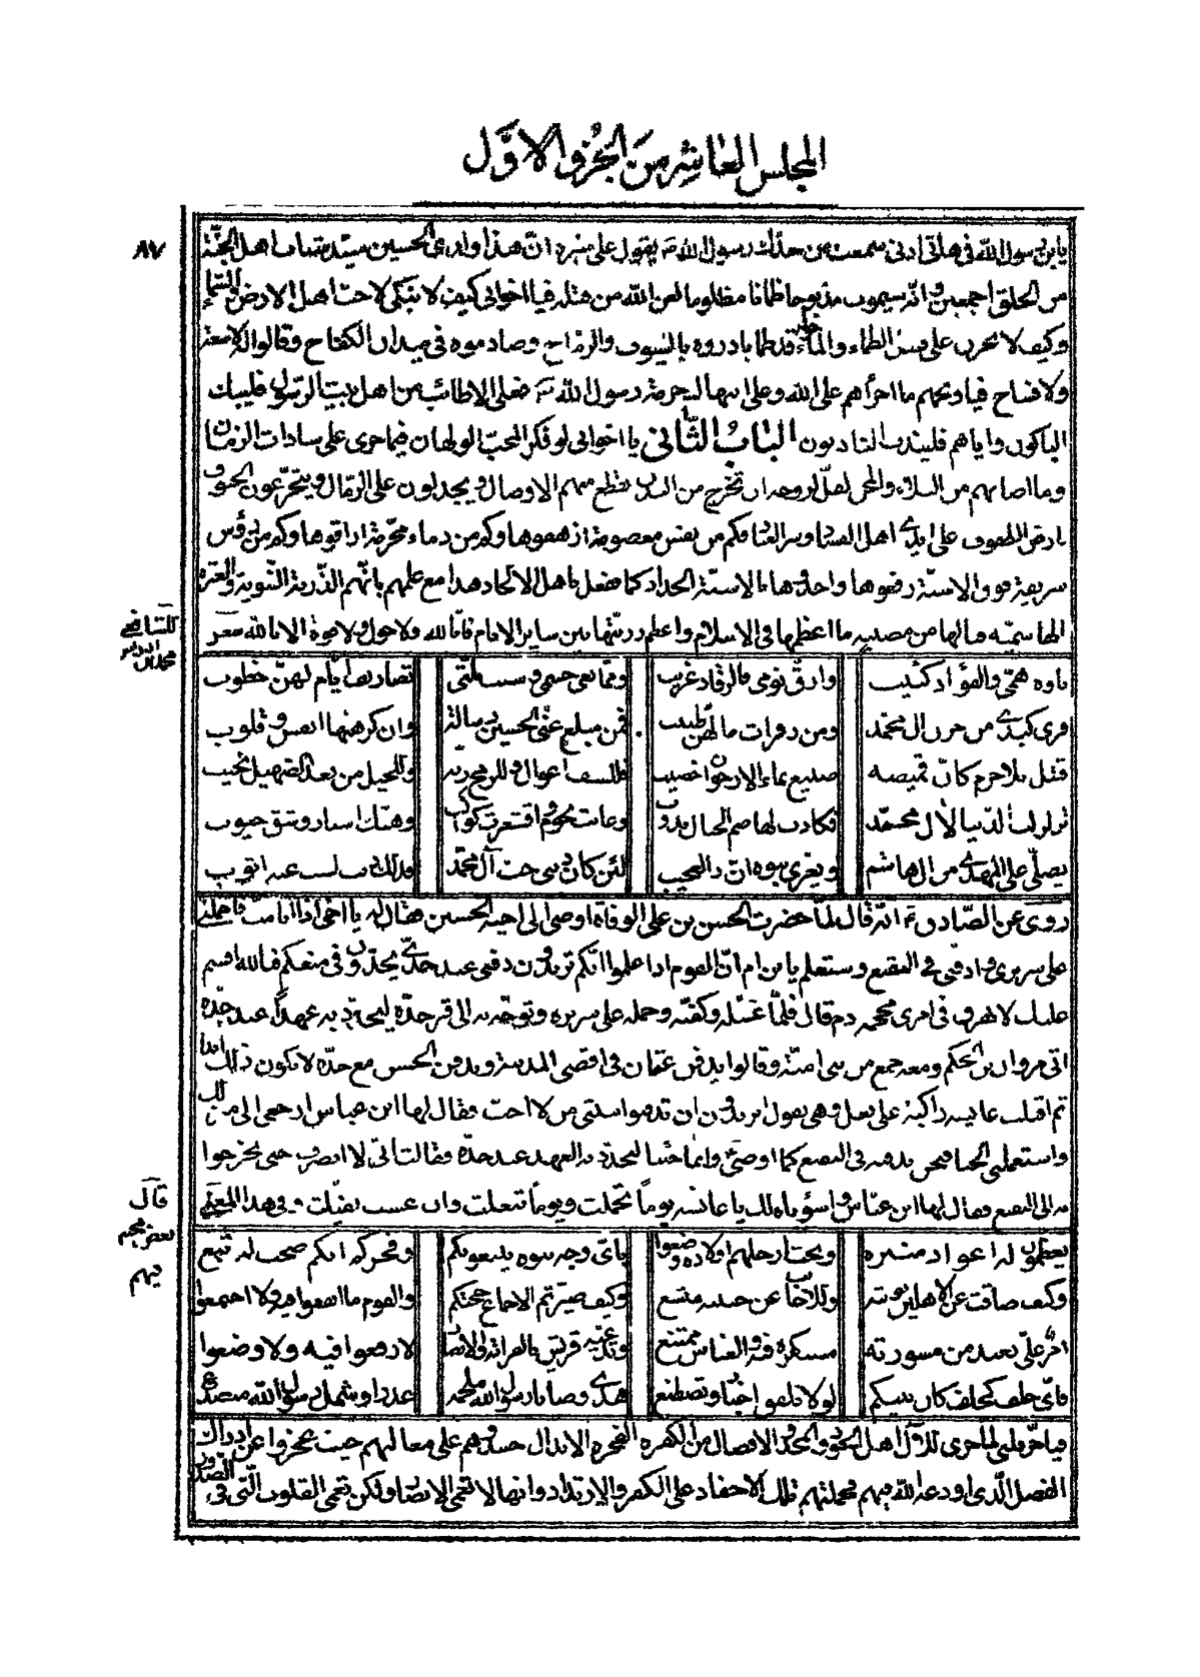 المجلس العاشر من الجزو الاوّل
٨٧
يابن رسول الله في هاتي ادنى سمعت من جدّك رسول الله يقول على منبره انّ هذا ولدي الحسين سيّد شباب اهل الجنّة
من الخلق اجمعين وانّه سيموت مذبوحا ظمانا مظلوما لعن الله من قتله فيا اخواني كيف لا تبكى لاحتا اهل الارض والسّماء
وكيف لا نحزن على ميت الظماء والماء قد طما بادروه بالسيوف والرّماح وصادموه في ميدان الكفاح وقالوا له لا سعة
ولا فساح فيا ويحهم ما اجرأهم على الله وعلى انتهاك حرمة رسول الله فعلى الاطائب من اهل بيت الرّسول فليبك
الباكون واياهم فليندب النادبون الباب الثّاني يا اخواني لو فكر المحبّ الولهان فيما جرى على سادات الزمان
وما اصابهم من البلاء والمحن لعلّ روحه ان تخرج من البدن تقطّع منهم الاوصال ويجدلون على الرّمال ويتجرّعون الحتوف
بارض الطفوف على ايدي اهل الفساد وشر العباد فكم من نفس معصومة ازهقوها وكم من دماء محرّمة اراقوها وكم من رؤس
شريفة فوق الاسنّة رفعوها واحدوها بالاسنّة الحداد كما فعل باهل الالحاد هذا مع علمهم بانّهم الذّرية النّبوية والعترة
الهاشميّه فيا لها من مصيبة ما اعظمها في الاسلام واعظم رزيّتها بين ساير الانام فانّا لله ولا حول ولا قوة الا بالله شعر
للشّافعي
تاوه همّي والفؤاد كئيب
وارق نومي فالرقاد غريب
وممّا نفى جسمي وشيب لمّتي
تصاريف ايّام لهنّ خطوب
فرى كبدي من حزن ال محمّد
ومن زفرات ما لهنّ طبيب
فمن مبلغ عنّي الحسين رسالة
وان كرهتها انفس وقلوب
قتيل بلا جرم كانّ قميصه
صبيغ بماء الارجوان خضيب
فللسيف اعوال وللرمح رنّه
وللخيل من بعد الصّهيل نحيب
تزلزلت الدّنيا لال محمّد
فكادت لها صم الجبال تذوب
وغارت نجوم واقشعرت كواكب
وهتك استار وشق جيوب
يصلّى على المهدي من ال هاشم
ويغزى بنوه انّ ذا لعجيب
لئن كان ذنبي حبّ آل محمّد
فذلك ذنب لست عنه اتوب
روى عن الصّادق ع انّه قال لمّا حضرت الحسن بن علي الوفاة اوصى الى اخيه الحسين فقال له يا اخي اذا انا متّ فاحملني
على سريري وادفني في البقيع وستعلم يابن ام انّ القوم اذا علموا انّكم تريدون دفني عند جدّي يجدّون في منعكم فبالله اقسم
عليك لا تهرق في امري محجمة دم قال فلمّا غسّله وكفّنه وحمله على سريره وتوجّه به الى قبر جدّه ليجدّد به عهدا عند جدّه
اتى مروان بن الحكم ومعه جمع من بني اميّة وقالوا يدفن عثمان في اقصى المدينة ويدفن الحسن مع جدّه لا يكون ذلك ابدا
ثم اقبلت عايشه راكبة على بغل وهي تقول تريدون ان تدخلوا بيتي من لا احب فقال لها ابن عباس ارجعي الى منزلك
واستعملي الحيا فنحن ندفنه في البقيع كما اوصى وانّما جئنا ليجدّد به العهد عند جدّه فقالت انّي لا انصرف حتى تخرجوا
به الى البقيع فقال لها ابن عبّاس واسؤتاه لك يا عايشه يوماً تجمّلت ويوماً تبغلت وان عشت تفيّلت وفي هذا المعنى
قال بعض محبيهم
يعظمون له اعواد منبره
وتحت ارجلهم اولاده وضعوا
باىّ وجه بنوه يتبعونكم
وفخركم انكم صحب له تبع
وكيف ضاقت عن الاهلين تربته
وللاجانب عن جنبيه متسع
وكيف صيّرتم الاجماع حجتكم
والقوم ما اتفقوا فيه ولا اجمعوا
امر علىّ بعيد من مشورته
مستكره فيه والعبّاس ممتنع
وتدّعيه قريش بالقرابة والانصار
لا رفعوا فيه ولا وضعوا
فاىّ خلف كخلف كان بينكم
لولا تلفق اخبار وتصطنع
فيا حرّ قلبي لما جرى لال اهل الجود والمجد والافضال من الكفرة الفجرة الانذال حسدوهم على معاليهم حيث عجزوا عن ادراك
الفضل الّذي اودعه الله فيهم فحملتهم تلك الاحقاد على الكفر والارتداد وانها لا تعمى الابصار ولكن تعمى القلوب الّتي في الصّدور